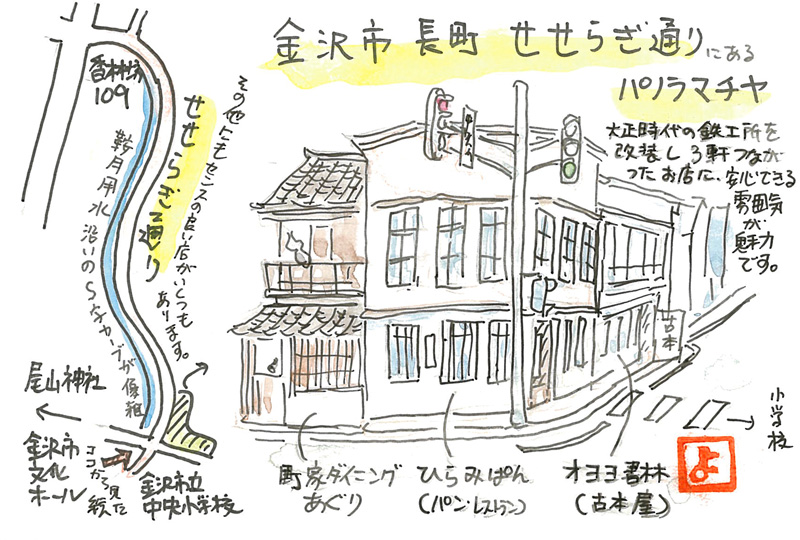 金沢市 長町 せせらぎ通りにある
パノラマチヤ
大正時代の鉄工所を
改装し3軒つなが
ったお店に、安心できる
雰囲気
が
魅力
です。
香林坊
109
せせらぎ通り
鞍月用水沿いのS字カーブが優雅
その他にもセンスの良い店がいくつも
あります。
尾山神社
金沢市
文化
ホール
ココから見た
絵
金沢市立
中央小学校
古本
小学校
町家ダイニング
あぐり
ひらみぱん
(パン・レストラン)
オヨヨ書林
(古本屋)
よ